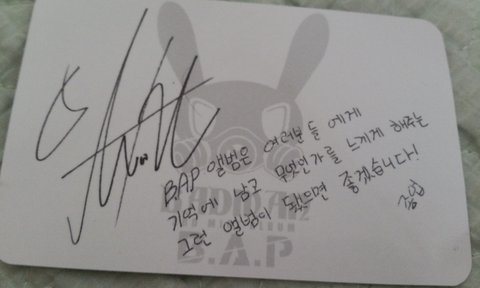 BAP 앨범은 여러분들 에게
기억에 남고 무엇인가를 느끼게 해주는
그런 앨범이 됐으면 좋겠습니다!
젤업
BADMAN
B.A.P